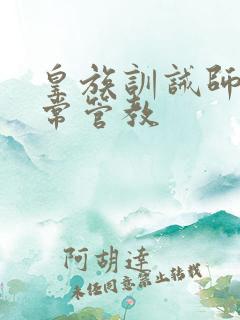 皇族訓誡師
常管教
阿胡達
未经同意禁止转载